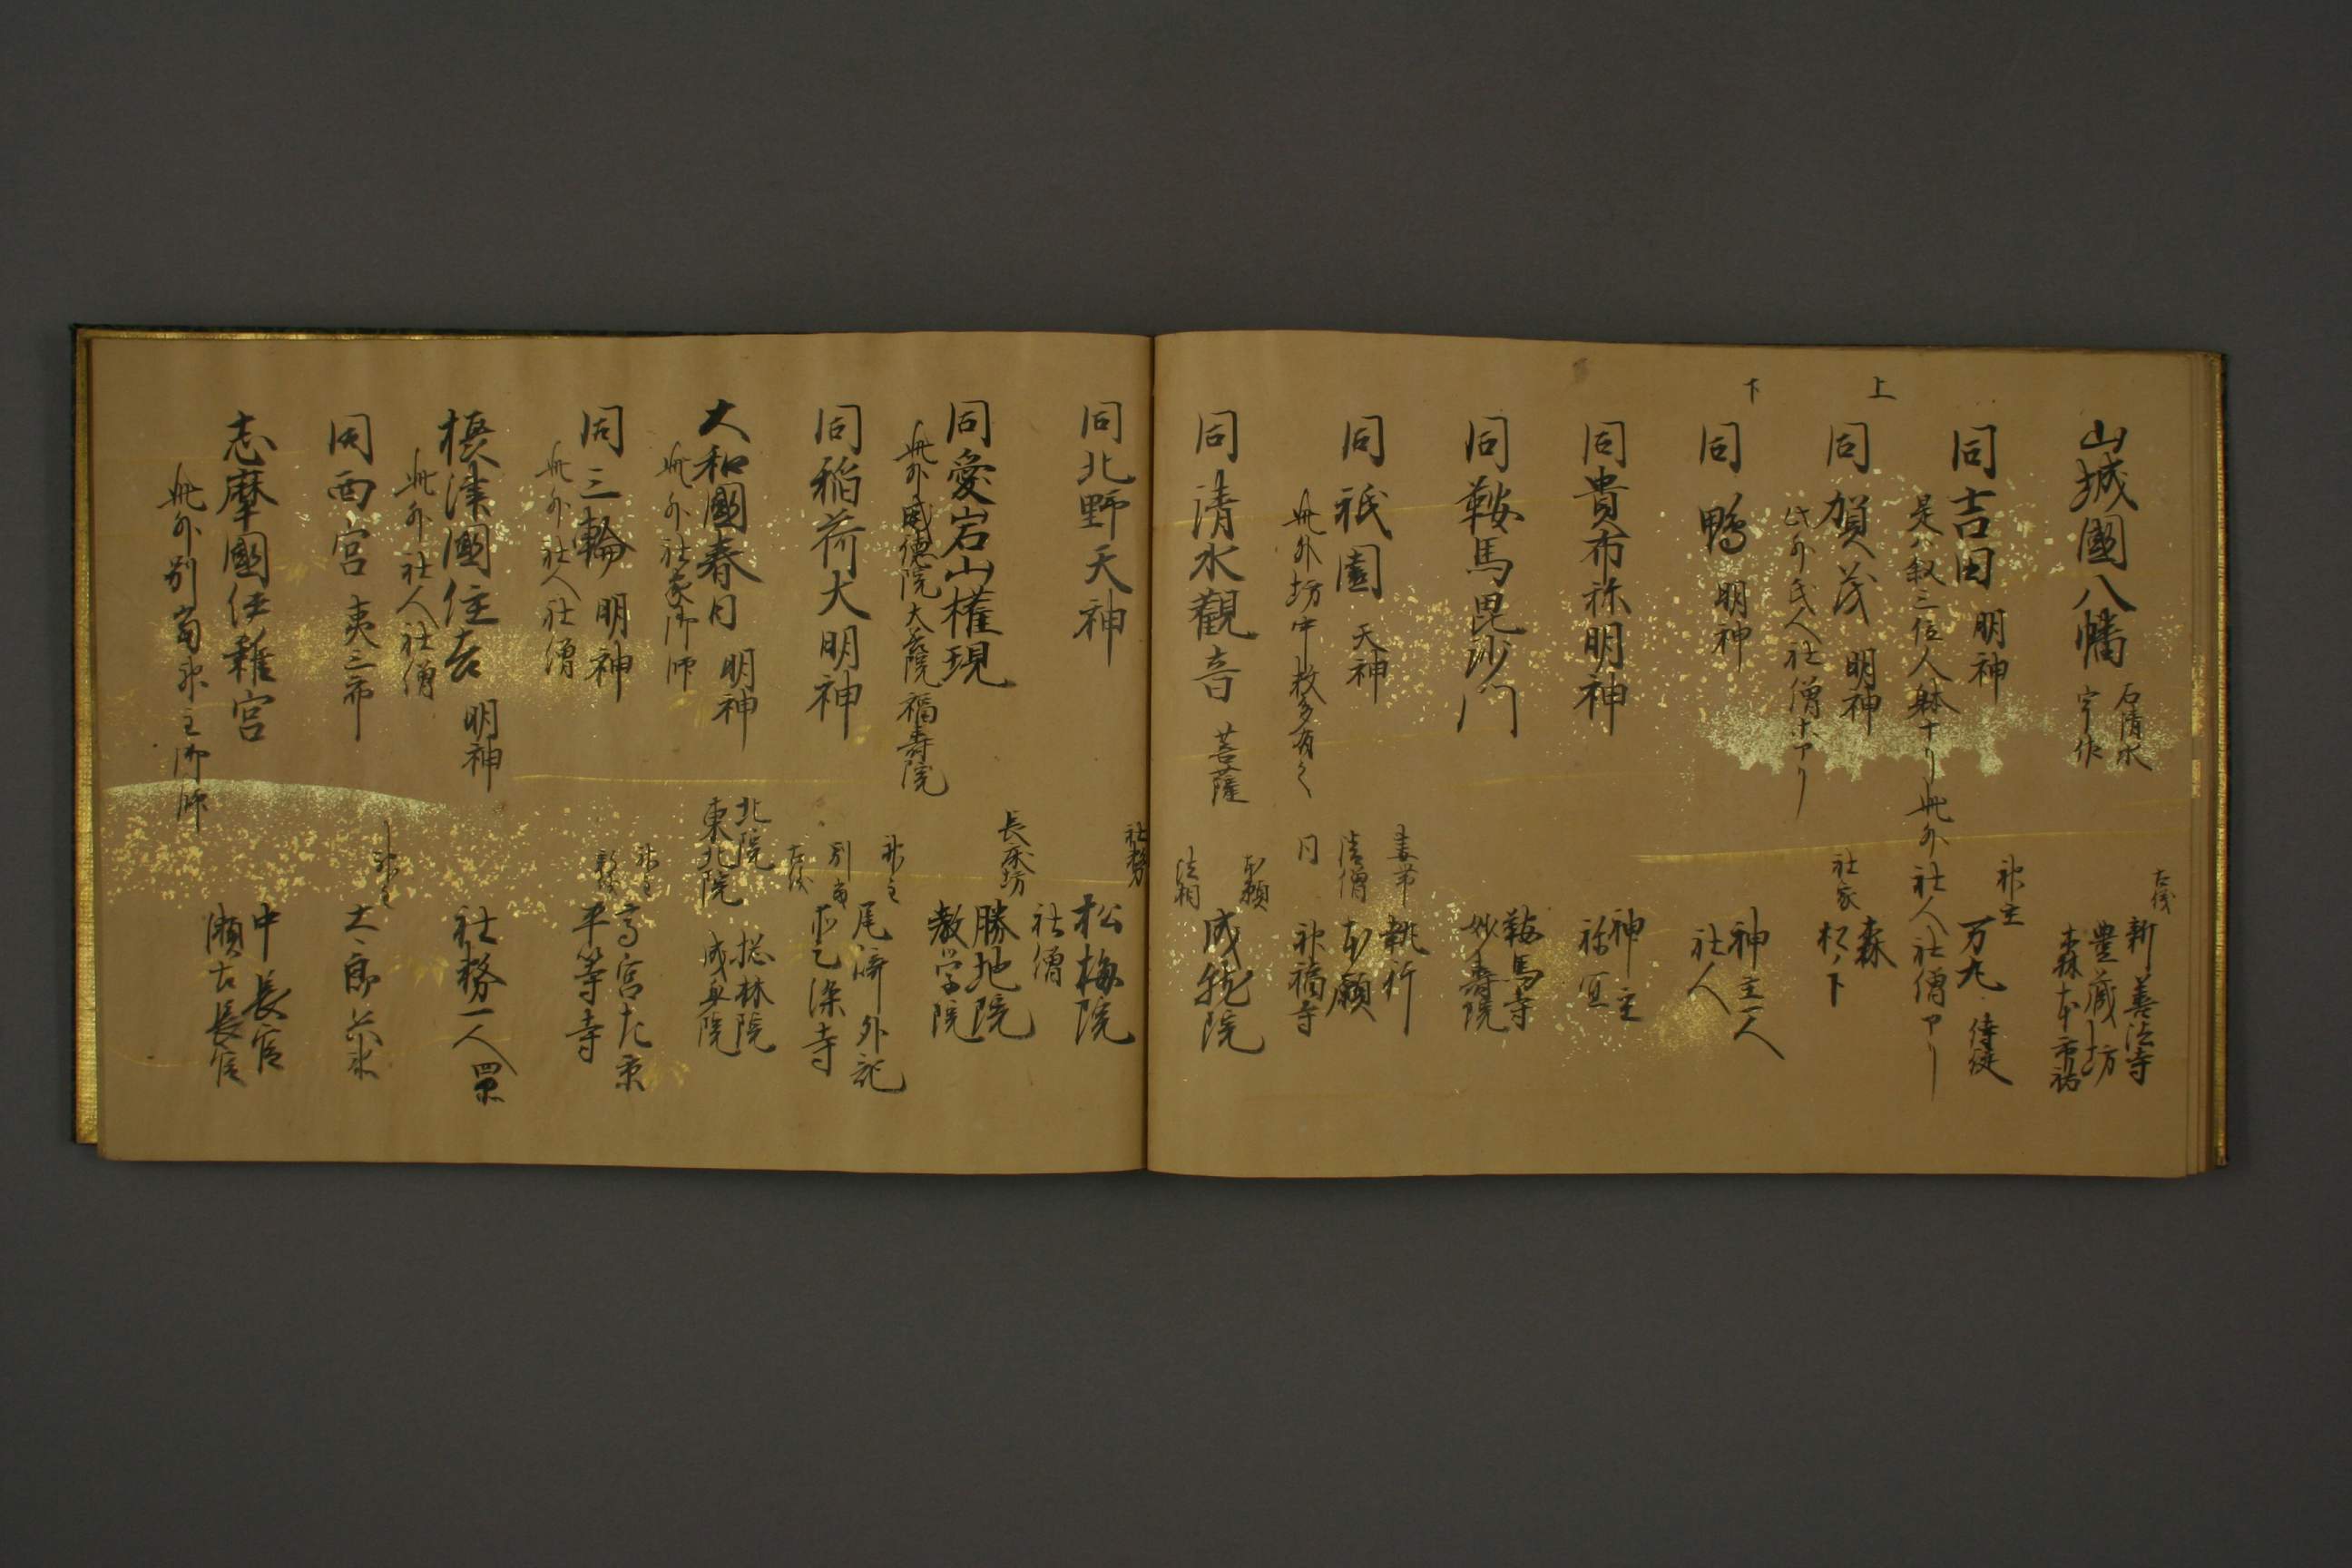 山城國八幡 石清水
新善法寺
豊蔵坊
森本市祐
同吉田 明神
神主
万九 侍従
是ハ叙三位人躰ナリ此外社人社僧アリ
上
同賀茂 明神
社家
森
松下
此外氏人社僧ホアリ
下
同鴨 明神
神主一人
社人
同貴布祢明神
神主
祢宜
同鞍馬毘沙门
鞍馬寺
妙壽院
同祇園 天神
執行
本願
神福寺
此外坊中数多有之
同清水觀音 菩薩
本願
成就院
同北野天神
社務
松梅院
社僧
同愛宕山權現
長床坊
勝地院
教学院
此外威徳院大善院福壽院
同稲荷大明神
神主
別當
尾﨑外記
大和國春日 明神
北院
東北院
成身院
此外社家御師
同三輪 明神
神主
高宮左京
平等寺
此外社人社僧
摂津國住吉 明神
社務一人
此外社人社僧
同西宮 夷三郎
神主
志摩國伊雜宮
中長官
瀬古長官
此外別當神主御師